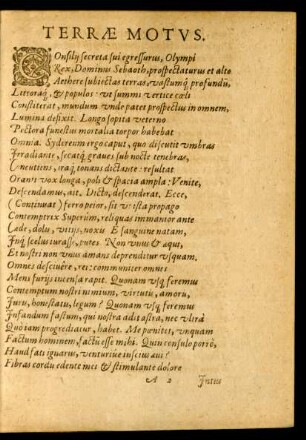 TERRÆ MOTVS.
COnsilij secreta sui egressurus, Olympi
Rex, Dominus Sebaoth, prospectaturus et alto
Aethere subiectas terras, vastumq́ profundū,
Littoraq́, & populos: vt summi vertice cœli
Constiterat, mundum vnde patet prospectus in omnem,
Lumina defixit. Longo sopita veterno
Pectora funestus mortalia torpor habebat
Omnia. Sydereum ergo caput, quo discutit vmbras
Irradiante, secatq́ graues sub nocte tenebras,
Concutiens, itaq́ tonans dictante: resultat
Orantis vox longa, poli & spacia ampla: Venite,
Descendamus, ait. Dicto, descenderat. Ecce,
(Continuat) ferro prior, sit vt ista propago
Contemptrix Superûm, reliquas immanior ante
Cæde, dolu, vitijs, noxis E sanguine natam,
Inq́ scelus iurasse, putes. Non vnus & æqui,
Et nostri non vnus amans deprenditur vsquam.
Omnes desciuêre, rei communiter omnes
Mens furijs incensa rapit. Quonam vsq́ feremus
Contemptum nostri nimium, virtutū, amorū,
Juru, honestatu, legum? Quonam vsq́ feremus
Infandum fastum, qui nostra adit astra, nec vltrà
Quò tam progrediatur, habet. Me pœnitet, vnquam
Factum hominem, facti esse mihi. Quin consulo porrò,
Haud fati ignarus, venturiue inscius æui?
Fibras cordū edente mei & stimulante dolore
A 2 Intus